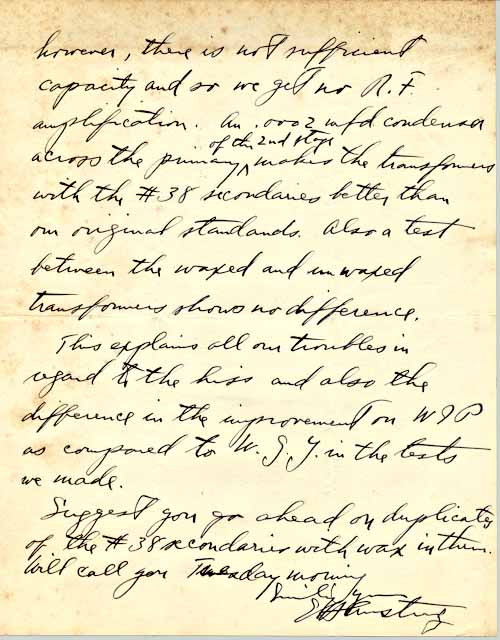 however, there is not sufficient
capacity and so we get no R.F.
amplification. An .0002 mfd condenser
across the primary of the 2nd stage makes the transformers
with the #38 secondaries better than
our original standards. Also a test
between the waxed and unwaxed
transformers shows no difference.
This explains all our troubles in
regard to the hiss and also the
difference in the improvement on WIP
as compared to W.G.Y. in the tests
we made.
Suggest you go ahead on duplicates
of the #38 secondaries with wax in them.
Will call you Tuesday morning
Sincerely yours
EH Armstrong